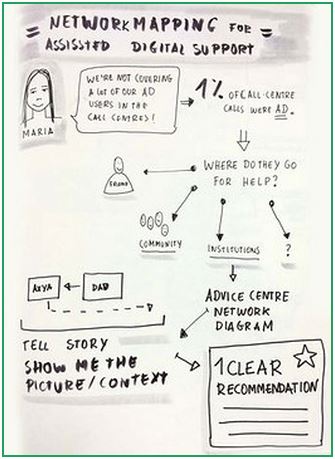 NETWORK MAPPING FOR
ASSISTED DIGITAL SUPPORT
WE'RE NOT COVERING
A LOT OF OUR AD
USERS IN THE
CALL CENTRES!
MARIA
1% OF CALL-CENTRE
CALLS WERE AD.
WHERE DO THEY GO
FOR HELP?
FRIEND
COMMUNITY
INSTITUTIONS
?
ADVICE CENTRE
NETWORK
DIAGRAM
DAD
TELL STORY
SHOW ME THE
PICTURE/CONTEXT
1 CLEAR
RECOMMENDATION